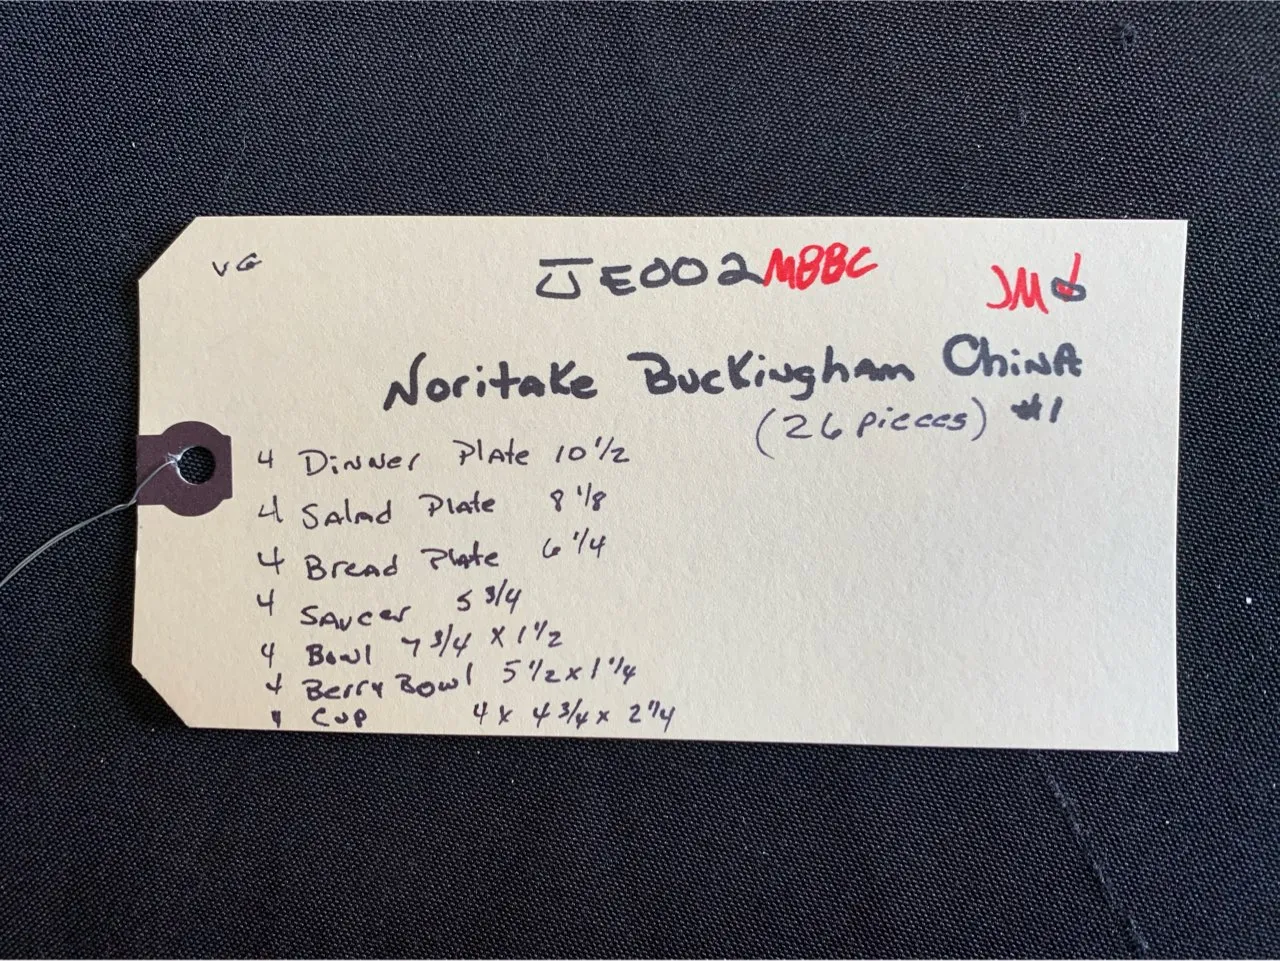 VG
JE002MBBC
JMd
Noritake Buckingham China
(26 pieces) #1
4 Dinner Plate 10 1/2
4 Salad Plate 8 1/8
4 Bread Plate 6 1/4
4 Saucer 5 3/4
4 Bowl 7 3/4 x 1 1/2
4 Berry Bowl 5 1/2 x 1 1/4
4 Cup 4 x 4 3/4 x 2 1/4